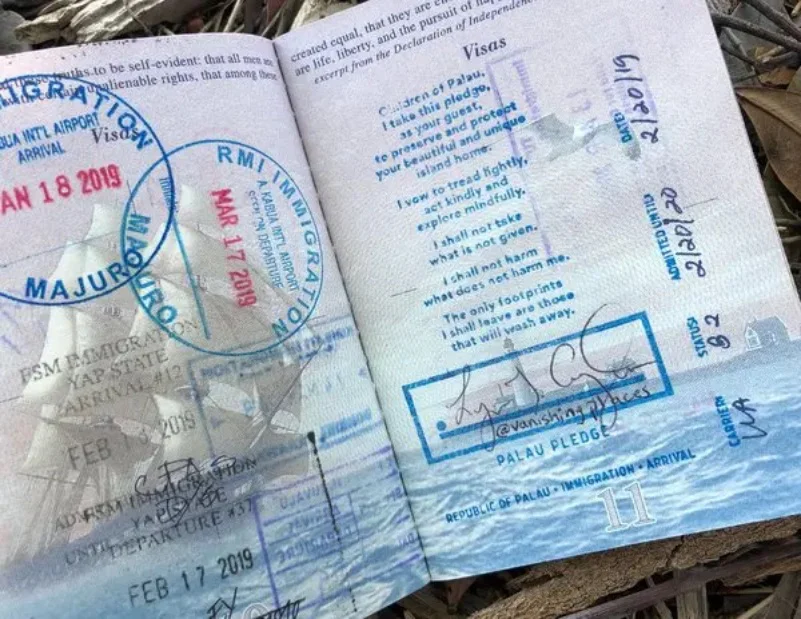 truths to be self-evident: that all men are
unalienable rights, that among these
Visas
IGRATION
BUA INT'L AIRPORT
ARRIVAL
AN 18 2019
MAJURO
RMI IMMIGRATION
A. KABUA INT'L AIRPORT
DEPARTURE
MAR 17 2019
MAJURO
FSM IMMIGRATION
YAP STATE
ARRIVAL #12
FEB 3 2019
FSM IMMIGRATION
YAP STATE
DEPARTURE #37
UNTIL
FEB 17 2019
created equal, that they are
are life, liberty, and the pursuit of
excerpt from the Declaration of Independence
Visas
Children of Palau,
I take this pledge,
as your guest,
to preserve and protect
your beautiful and unique
island home.
I vow to tread lightly,
act kindly and
explore mindfully.
I shall not take
what is not given.
I shall not harm
what does not harm me.
The only footprints
I shall leave are those
that will wash away.
@vanishingplaces
PALAU PLEDGE
REPUBLIC OF PALAU • IMMIGRATION • ARRIVAL
11
DATED 2/20/19
ADMITTED UNTIL 2/20/20
STATUS B2
CARRIER UA